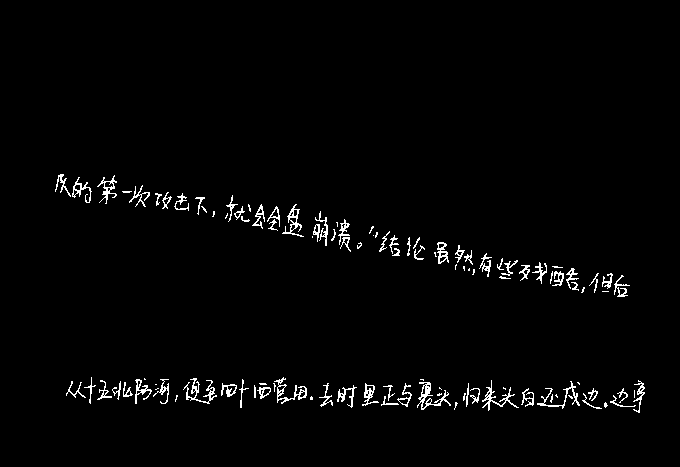 队的第一次攻击下，就会全盘崩溃。"结论虽然有些残酷，但后
从十五北防河，便至四十西营田.去时里正与裹头，归来头白还戍边.边亭